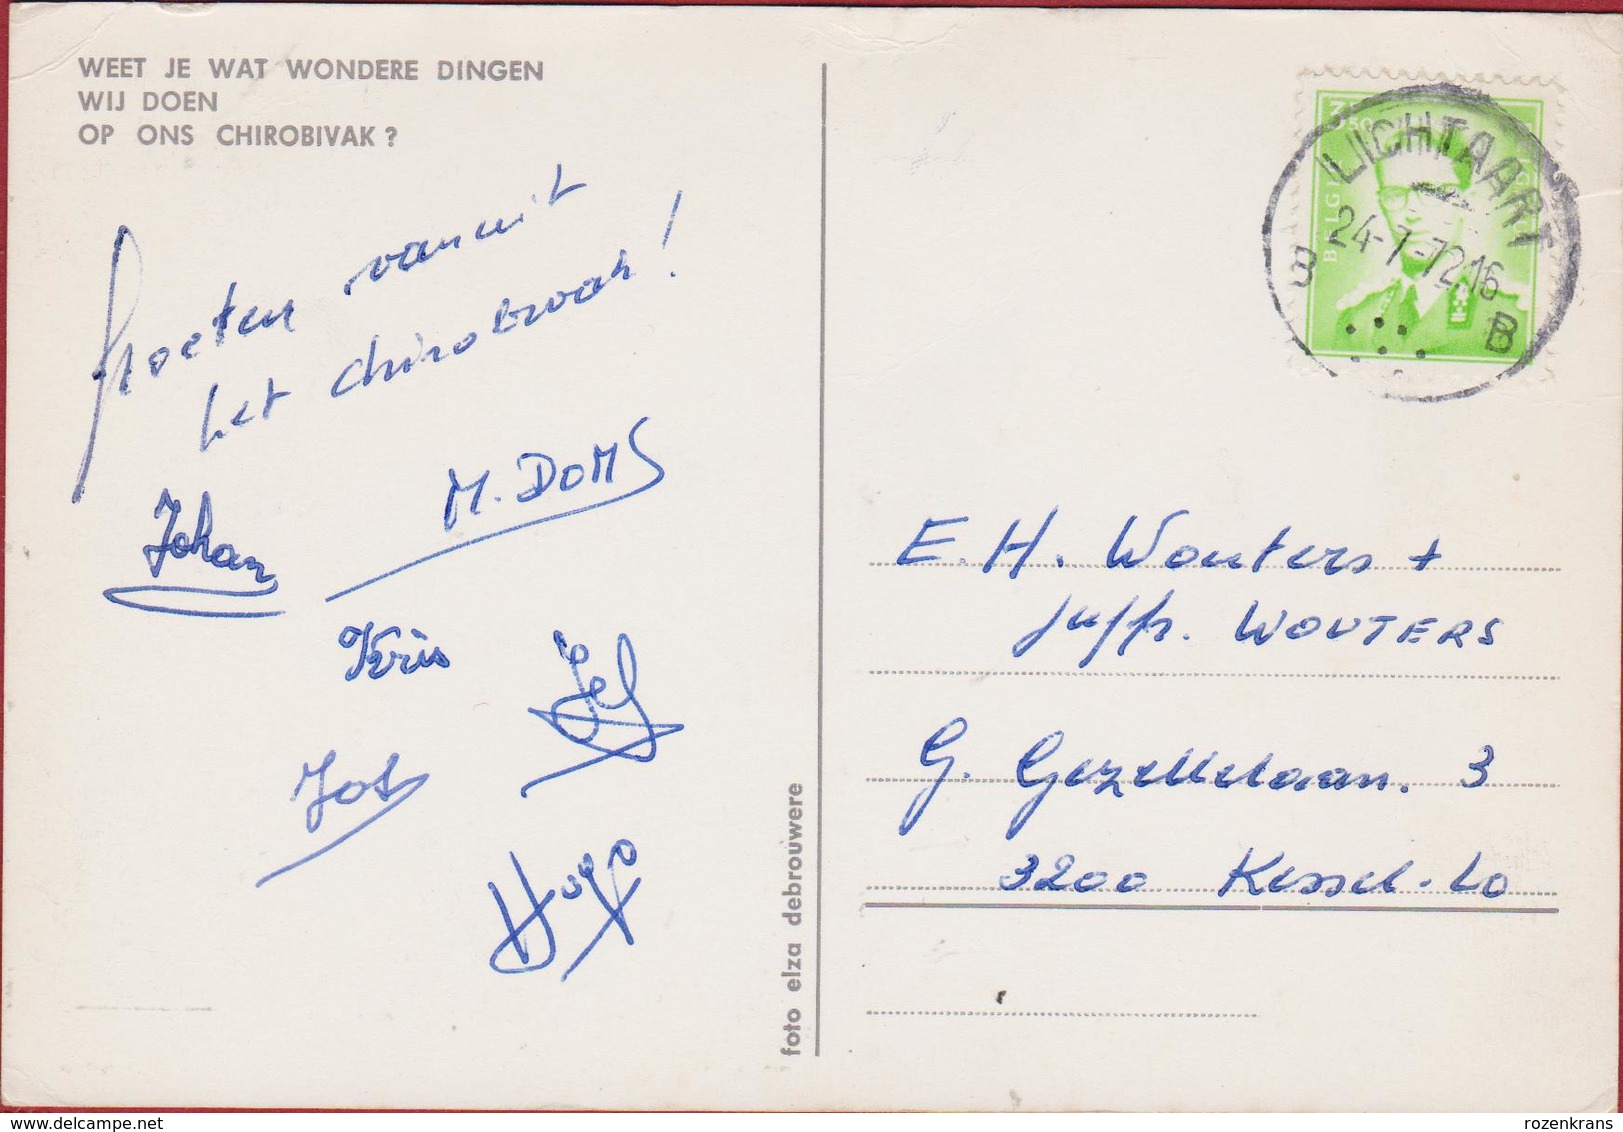 WEET JE WAT WONDERE DINGEN
WIJ DOEN
OP ONS CHIROBIVAK ?
Groeten vanuit
het chirobivak!
M. DOMS
Johan
Kris
Jef
Jos
Hugo
foto elza debrouwere
3F50
BELGIE
LICHTAART
24-7-72 16
B B
E. H. Wouters +
juffr. WOUTERS
G. Gezellelaan. 3
3200 Kessel-Lo
rozenkrans